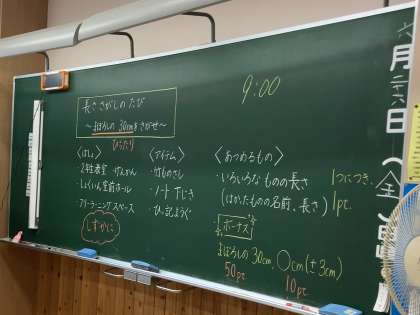 六月二十六日(金)
9:00
長ささがしのたび
～まぼろしの30cmをさがせ～
ぴったり
〈ばしょ〉
・2年生教室 げんかん
・しょくいん室前ホール
・フリーラーニングスペース
しずかに
〈アイテム〉
・竹ものさし
・ノート 下じき
・ひっ記ようぐ
〈あつめるもの〉
・いろいろなものの長さ
(はかたものの名前、長さ)
1つにつき、
1pt.
ボーナス
まぼろしの30cm、○cm(±3cm)
50pt. 10pt.